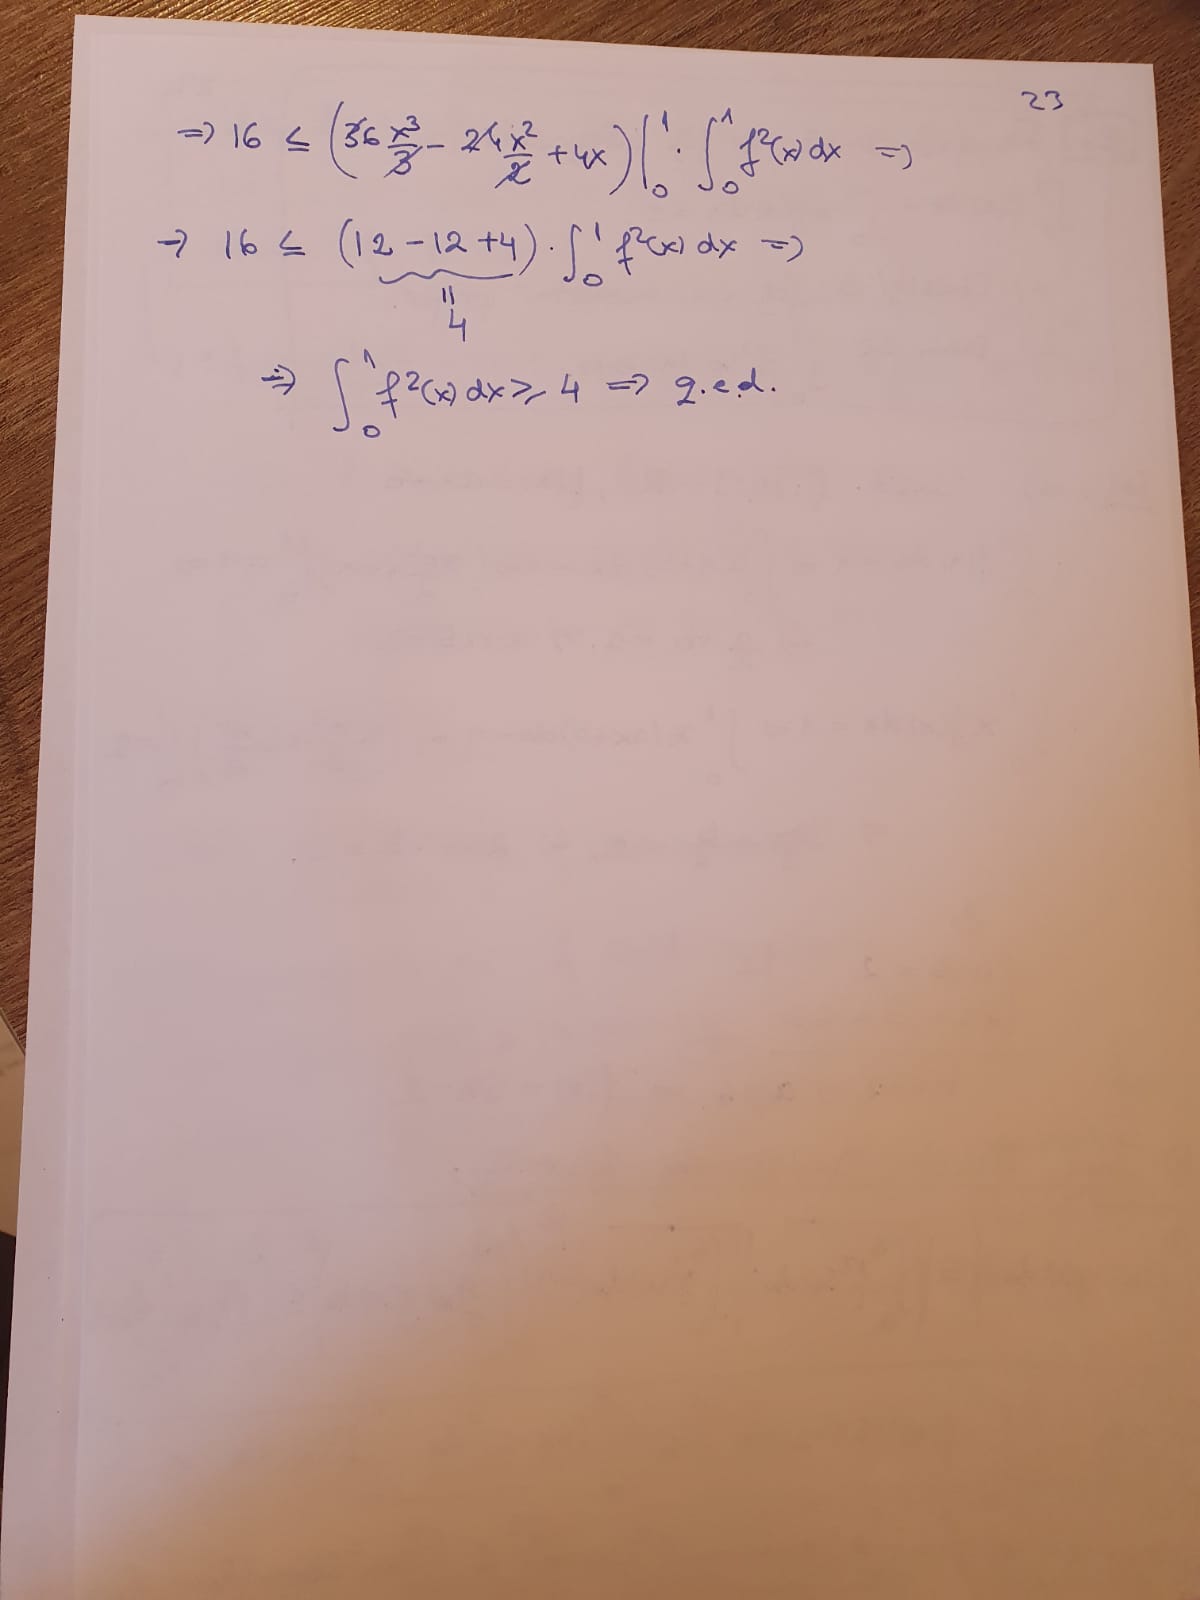 23
=> 16 ≤ (36 x³/3 - 24 x²/2 + 4x) |₀¹ · ∫₀¹ f²(x) dx =>
=> 16 ≤ (12 - 12 + 4) · ∫₀¹ f²(x) dx =>
=
4
=> ∫₀¹ f²(x) dx ≥ 4 => q.e.d.